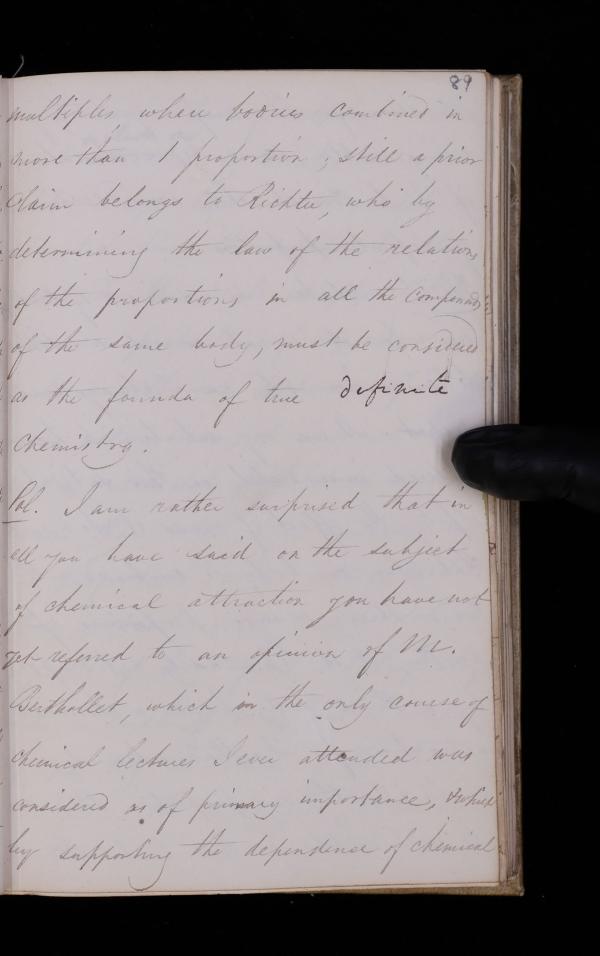 89
multiples where bodies combined in
more than 1 proportion, still a prior
claim belongs to Richter, who by
determining the law of the relations
of the proportions in all the compounds
of the same body, must be considered
as the founder of true definite
Chemistry.
Pol. I am rather surprised that in
all you have said on the subject
of chemical attraction you have not
yet referred to an opinion of M.
Berthollet, which in the only course of
chemical lectures I ever attended was
considered as of primary importance, & which
by supporting the dependence of chemical